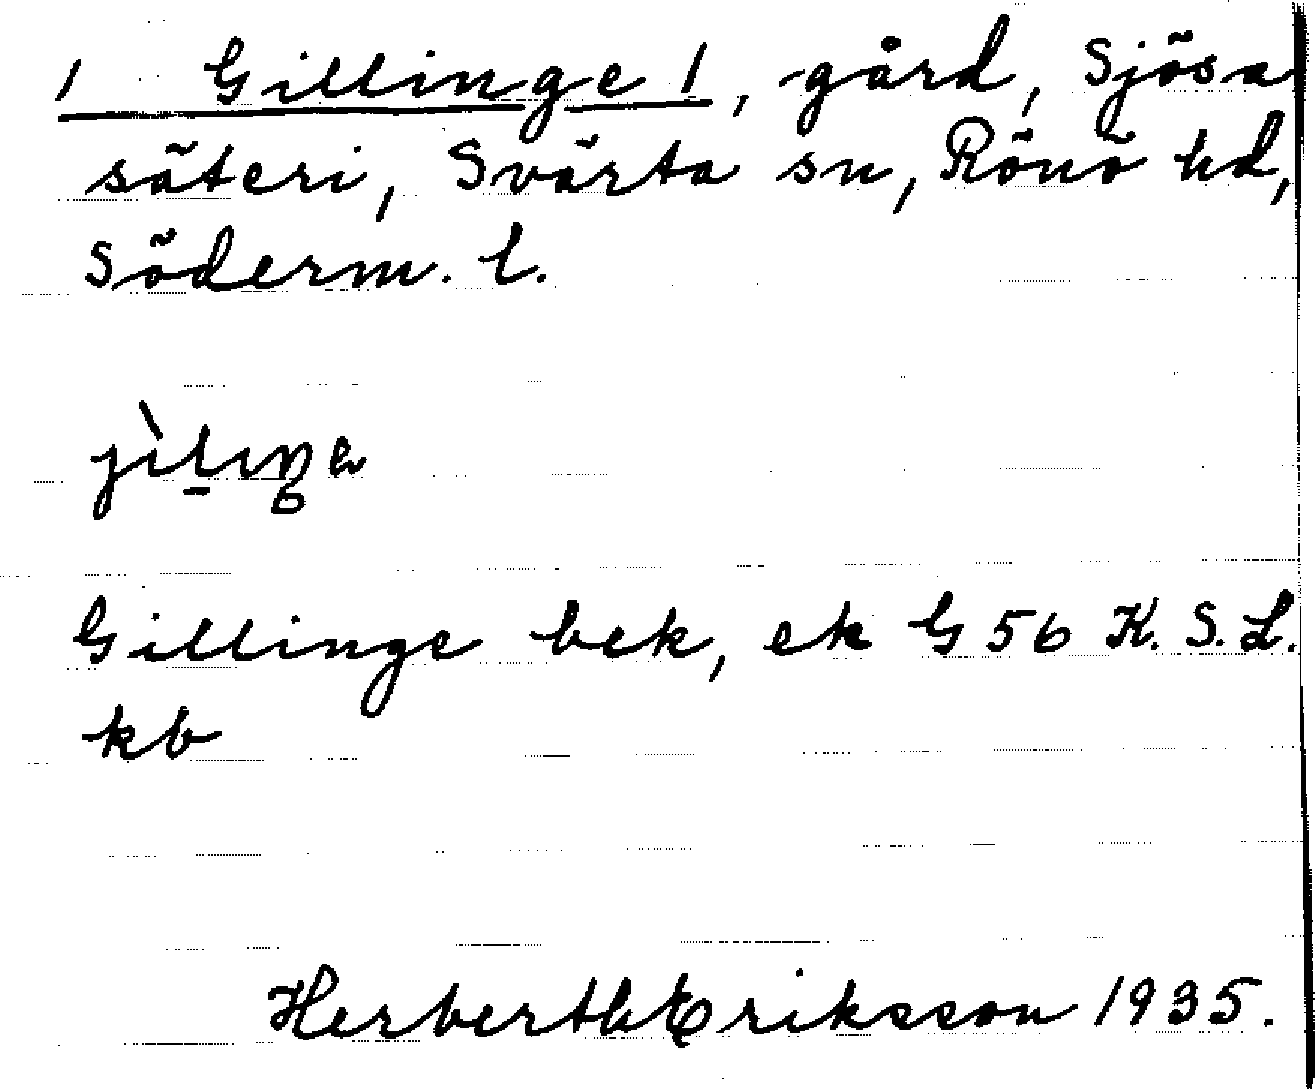 / Gillinge /, gård, Sjösa
säteri, Svärta sn, Rönö hd,
Söderm. l.
Gillinge bek, ek G 56 K. S. L.
kb
Herberth Eriksson 1935.